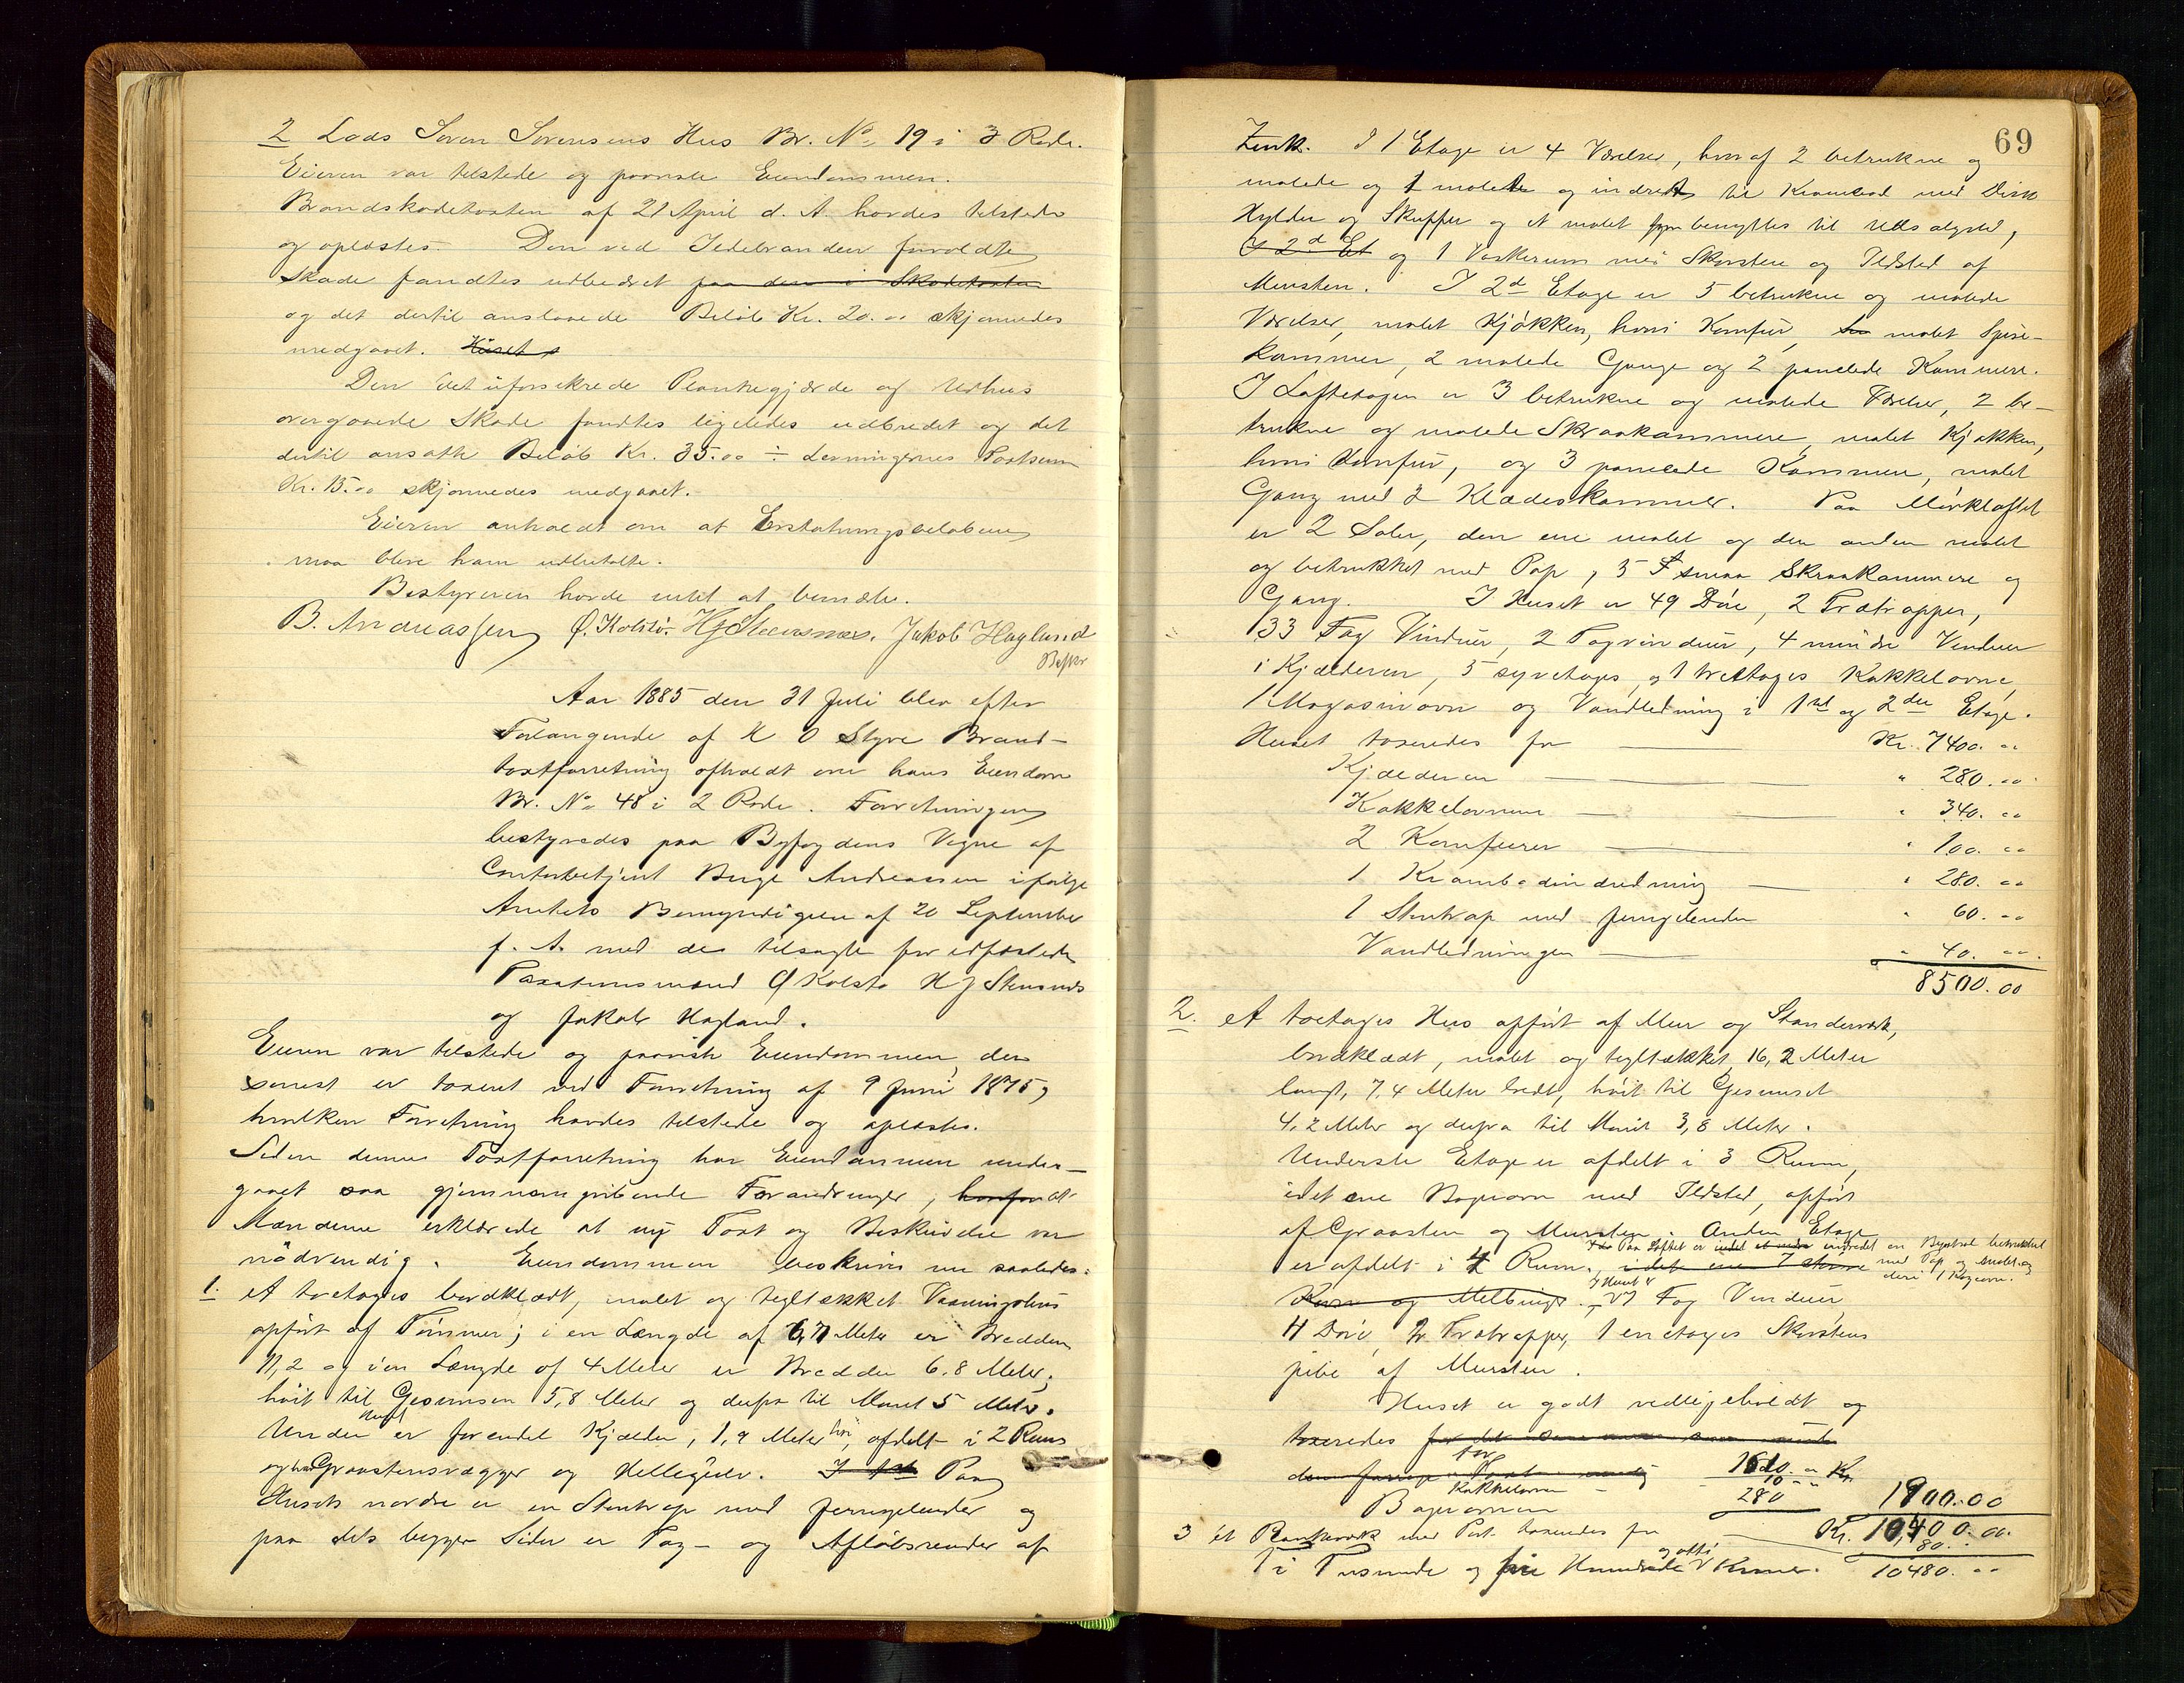 2 Lods Søren Sørensens Hus Br. No 19 i 3 Rode.
Eieren var tilstede og paaviste Eiendommen.
Brandskadetaxten af 21 April d. A. havdes tilstede
og oplæstes. Den ved Ildebranden forvoldte
Skade fandtes udbedret paa den i Skadetaxten
og det dertil anslaaede Beløb Kr. 20.00 skjønnedes
medgaaet. Huset
Den det uforsikrede Plankegjærde og Udhus
overgaaede Skade fandtes ligeledes udbedret og det
dertil ansatte Beløb Kr. 35.00 ÷ Levningernes Taxtsum
Kr. 15.00 skjønnedes medgaaet.
Eieren anholdt om at Erstatningsbeløbene
maa blive ham udbetalte.
Bestyreren havde intet at bemærke.
B. Andreassen Ø. Kolstø. HJ Stensnæs. Jakob Hagland
Aar 1885 den 31 Juli blev efter
Forlangende af K O Styve Brand-
taxtforretning afholdt over hans Eiendom
Br. No 48 i 2 Rode. Forretningen
bestyredes paa Byfogdens Vegne af
Contorbetjent Berge Andreassen ifølge
Amtets Bemyndigelse af 20 September
f. A. med de tilsagte før edfæstede
Taxationsmænd Ø Kolstø H J Stensnæs
og Jakob Hagland.
Eieren var tilstede og paaviste Eiendommen, der
senest er taxeret ved Forretning af 9 Juni 1875,
hvilken Forretning havdes tilstede og oplæstes.
Siden denne Taxtforretning har Eiendommen under-
gaaet saa gjennemgribende Forandringer, hvorfor at
Mændene erklærede at ny Taxt og Beskrivelse var
nödvendig. Eiendommen beskrives nu saaledes:
1. et toetages bordklædt, malet og teglækket Vaaningshus
opført af Tømmer; i en Længde af 6,7 Meter er Bredden
11,2 og i en Længde af 4 Meter er Bredden 6.8 Meter;
høit til Gesimsen 5,8 Meter og derfra til Mønet 5 Meter.
Under Huset er forendel Kjælder, 1,9 Meter høi, afdelt i 2 Rum
og har Graastensvægge og Hellegulv. I 1ste Paa
Husets nordre er en Stentrap med Jerngelender og
paa dets begge Sider er Tag- og Afløbsrender af
69
Zink. I 1 Etage er 4 Værelser, hvoraf 2 betrukne og
malede og 1 malet og indredet til Krambod med Disk
Hylder og Skuffer og et malet benyttes til Udsalgsted,
I 2d Et og 1 Vaskerum med Skorsten og Ildsted af
Mursten. I 2d Etage er 5 betrukne og malede
Værelser, malet Kjøkken, hvori Komfur, malet Spise-
kammer, 2 malede Gange og 2 panelede Kammere.
I Loftetagen er 3 betrukne og malede Værelser, 2 be-
trukne og malede Skraakammere, malet Kjøkken,
hvori Komfur, og 3 panelede Kammere, malet
Gang med 2 Klædeskammer. Paa Mørkloftet
er 2 Saler, den ene malet og den anden malet
og betrukket med Pap, 5 smaa Skraakammere og
Gang. I Huset er 49 Døre, 2 Trætrapper,
33 Fag Vinduer, 2 Tagvinduer, 4 mindre Vinduer
i Kjælderen, 5 syvetages, og 1 tretages Kakkelovne,
1 Magasinovn og Vandledning i 1ste og 2den Etage.
Huset taxeredes for Kr. 7400.00
Kjælderen " 280.00
Kakkelovnene " 340.00
2 Komfurer " 100.00
1 Krambodindredning " 280.00
1 Stentrap med Jerngelender " 60.00
Vandledningen " 40.00.
8500.00
2. et toetages Hus opført af Mur og Stenderværk,
bordklædt, malet og tegltækket, 16,2 Meter
langt, 7,4 Meter bredt, høit til Gesimset
4,2 Meter og derfra til Mønet 3,8 Meter.
Underste Etage er afdelt i 3 Rum,
i det ene Bagerovn med Ildsted, opført
af Graasten og Mursten. Anden Etage
Paa Loftet er indredet en Bagstue betrukket
er afdelt i 4 Rum. i det ene 7 større med Pap og malet og
deri 1 Kogeovn.
Korn og Melbinger. I Huset er 21 Fag Vinduer,
11 Døre, 2 Trætrapper, 1 enetages Skorstens
pibe af Mursten.
Huset er godt vedligeholdt og
taxeredes for det samme
den forrige Taxt for 1610.00 Kr.
Kakkelovn 10
Bagerovnen 280 1900.00
3 et Plankeværk med Port taxeredes for Kr. 10,400.00.
80.
Ti Tusinde og fire Hundrede og otti Kroner. 10480.00